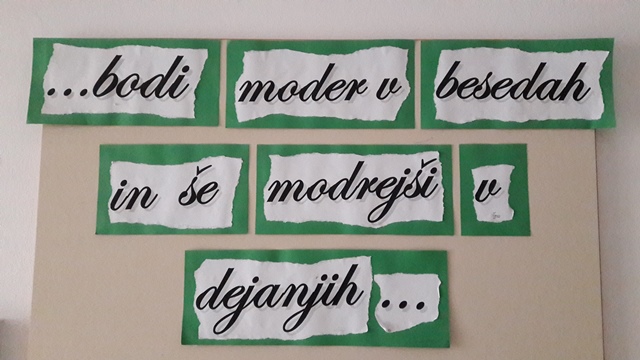 ...bodi moder v besedah
in še modrejši v
dejanjih...